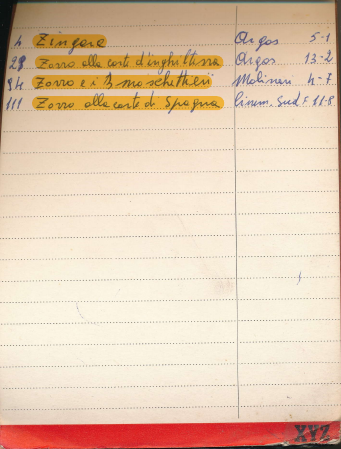 4 Zingara Argos 5-1
29 Zorro alla corte d'inghilterra Argos 13-2
94 Zorro e i 3 moschettieri Molinari 4-7
111 Zorro alla corte di Spagna Cinem. Sud F. 11-8
XYZ